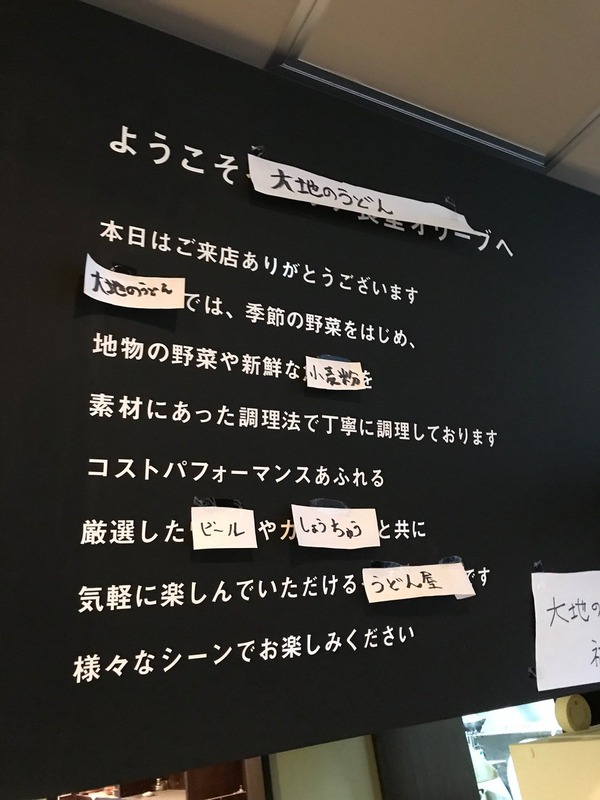 ようこそ大地のうどん オリーブへ
本日はご来店ありがとうございます
大地のうどんでは、季節の野菜をはじめ、
地物の野菜や新鮮な小麦粉を
素材にあった調理法で丁寧に調理しております
コストパフォーマンスあふれる
厳選したビールやカしょうちゅうと共に
気軽に楽しんでいただけるうどん屋です
様々なシーンでお楽しみください
大地の